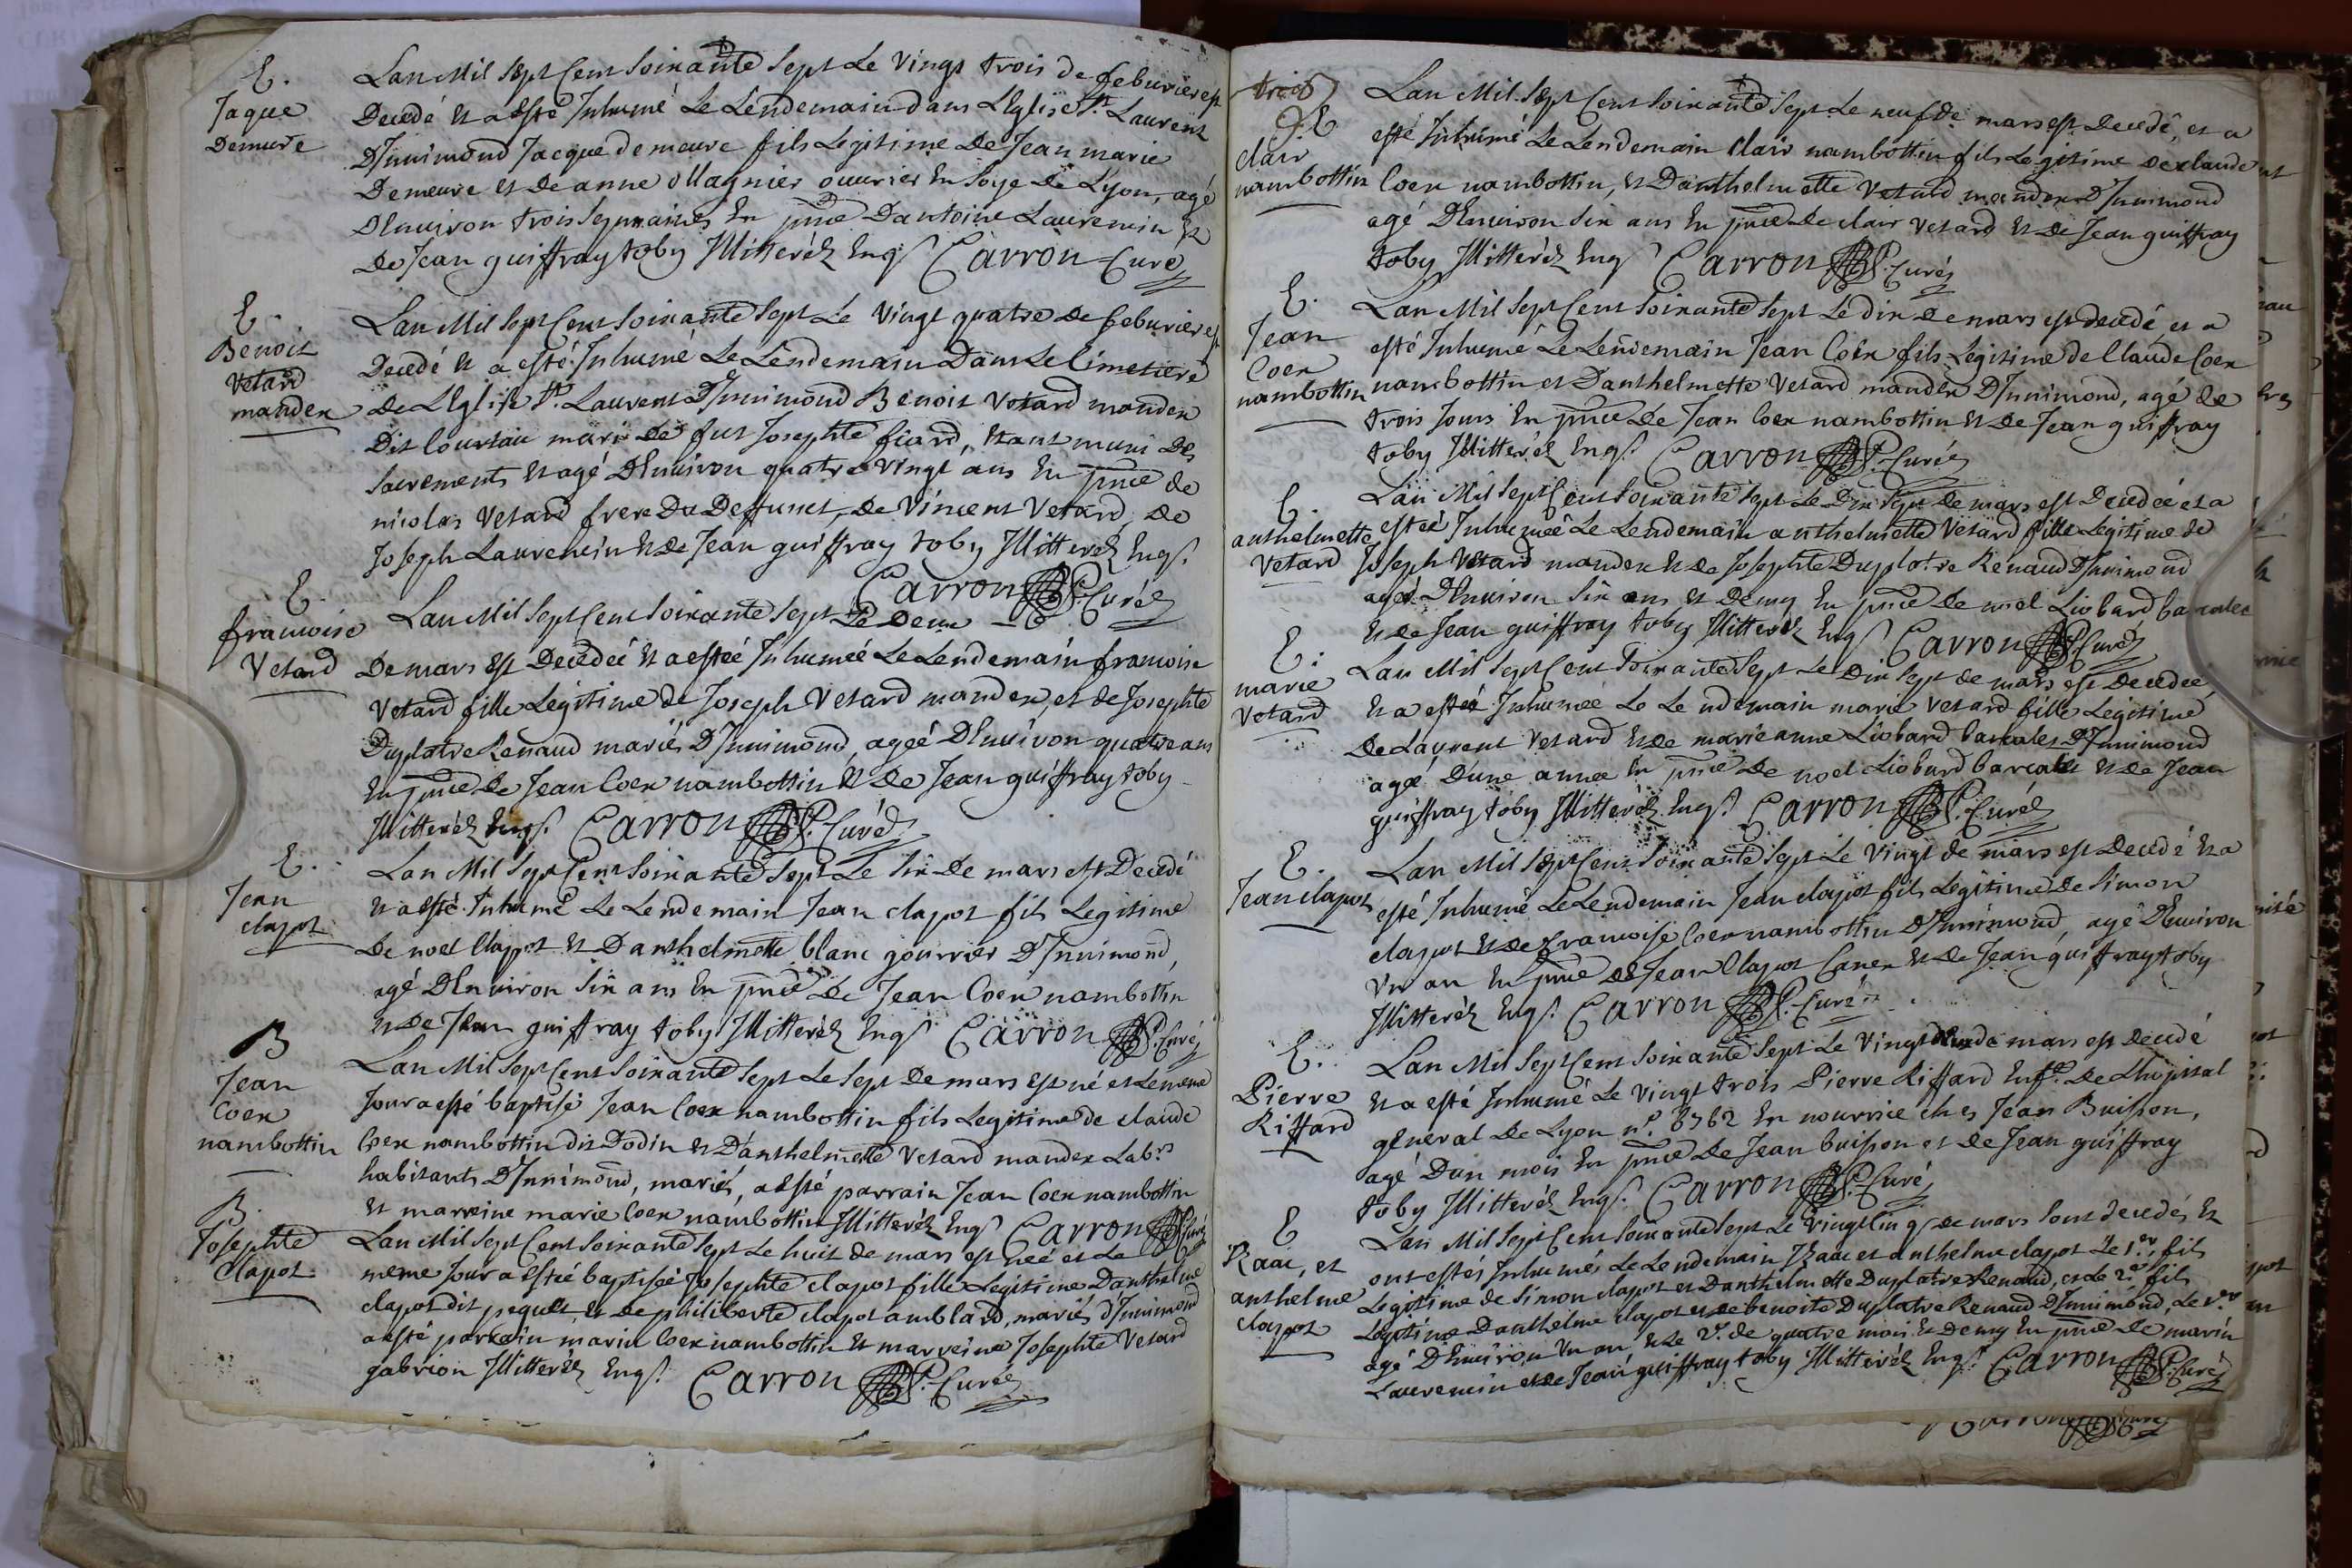 E.
Jaque
Demeure
Lan Mil Sept Cent Soixante Sept Le Vingt trois de feburier est
Decedé et a esté Inhumé Le Lendemain dans L'Eglise St. Laurent
D'Innimond Jacque demeure fils Legitime De Jean marie
Demeure et De anne Magnier ouurier En Soye De Lyon, agé
D'Enuiron trois Semaines En pnce Dantoine Laurencin Et
De Jean guiffray toby Illitteréz Enqs Carron Curé
E.
Benoit
Vetard
manden
Lan Mil Sept Cent Soixante Sept Le Vingt quatre de feburier est
Decedé Et a esté Inhumé Le Lendemain Dans Le Cimetiere
De L'Eglise St. Laurent D'Innimond Benoit Vetard manden
Dit Courtau mari De fut Josephte fiard, Etant muni Des
Sacrements Et agé D'Enuiron quatre Vingt ans En pnce de
nicolas Vetard frere Du Deffunct, De Vincent Vetard, De
Joseph Laurencin Et De Jean guiffray toby Illitteréz Enqs.
Carron P. Curé
E.
francoise
Vetard
Lan Mil Sept Cent Soixante Sept Le Deux
De mars Est Decedéé Et a estéé Inhuméé Le Lendemain francoise
Vetard fille Legitime de Joseph Vetard manden, et de Josephte
Duplatre Renaud mariés D'Innimond, agéé D'Enuiron quatre ans
En pnce De Jean Coex nambottin Et De Jean guiffray toby
Illitteréz Enqs. Carron P. Curé
E.
Jean
clapot
Lan Mil Sept Cent Soixante Sept Le Six De mars est Decedé
Et a esté Inhumé Le Lendemain Jean clapot fils Legitime
De noel Clapot Et Danthelmette blanc gourrier D'Innimond,
agé D'Enuiron Six ans En pnce De Jean Coex nambottin
Et De Jean guiffray toby Illitteréz Enqs. Carron P. Curé
B
Jean
Coex
nambottin
Lan Mil Sept Cent Soixante Sept Le Sept De mars est né et Le meme
Jour a esté baptisé Jean Coex nambottin fils Legitime de claude
Coex nambottin dit Dodin Et Danthelmette Vetard manden Labrs
habitants D'Innimond, mariés, a Esté parrain Jean Coex nambottin
Et marreine marie Coex nambottin Illitteréz Enqs Carron P. Curé
B.
Josephte
Clapot
Lan Mil Sept Cent Soixante Sept Le huit de mars est néé et Le
meme Jour a Estéé baptiséé Josephte clapot fille Legitime Danthelme
clapot dit pequet, Et De philiberte clapot amblard, mariés D'Innimond
a esté parrain marin Coex nambottin Et marreine Josephte Vetard
gabrion Illitteréz Enqs. Carron P. Curé
trois
E
clair
nambottin
Lan Mil Sept Cent Soixante Sept Le neuf de mars est Decedé, et a
esté Inhumé Le Lendemain Clair nambottin fils Legitime De claude
Coex nambottin, Et Danthelmette Vetard manden D'Innimond
agé D'Enuiron Six ans En pnce De clair Vetard Et De Jean guiffray
toby Illitteréz Enqs Carron P. Curé
E.
Jean
Coex
nambottin
Lan Mil Sept Cent Soixante Sept Le dix De mars est decedé, et a
esté Inhumé Le Lendemain Jean Coex fils Legitime de Claude Coex
nambottin et Danthelmette Vetard manden D'Innimond, agé De
trois Jours En pnce De Jean Coex nambottin Et De Jean guiffray
toby Illitteréz Enqs. Carron P. Curé
E.
anthelmette
Vetard
Lan Mil Sept Cent Soixante Sept Le Dix Sept De mars est Decedéé et a
estéé Inhuméé Le Lendemain anthelmette Vetard fille Legitime De
Joseph Vetard manden Et De Josephte Duplatre Renaud D'Innimond
agéé D'Enuiron Six ans Et Demy En pnce De noel Liobard barcales
Et De Jean guiffray toby Illitteréz Enqs Carron P. Curé
E.
marie
Vetard
Lan Mil Sept Cent Soixante Sept Le Dix Sept de mars est Decedéé
Et a estéé Inhuméé Le Lendemain marie Vetard fille Legitime
De Laurent Vetard Et De marie anne Liobard barcales D'Innimond
agéé D'une année En pnce De noel Liobard barcales Et De Jean
guiffray toby Illitteréz Enqs. Carron P. Curé
E.
Jean clapot
Lan Mil Sept Cent Soixante Sept Le Vingt de mars est Decedé Et a
esté Inhumé Le Lendemain Jean clapot fils Legitime De Simon
clapot Et De francoise Coex nambottin D'Innimond, agé D'Enuiron
Vn an En pnce De Jean Clapot Canex Et De Jean guiffray toby
Illitteréz Enqs. Carron P. Curé
E.
Pierre
Riffard
Lan Mil Sept Cent Soixante Sept Le Vingt deux de mars est Decedé
Et a esté Inhumé Le Vingt trois Pierre Riffard Enft. De L'hopital
general De Lyon no. 8762 En nourrice ches Jean Buisson,
agé Dun mois En pnce De Jean buisson et De Jean guiffray
toby Illitteréz Enqs. Carron P. Curé
E
Isaac, et
anthelme
clapot
Lan Mil Sept Cent Soixante Sept Le Vingt Cinq de mars Sont decedés Et
ont estés Inhumés Le Lendemain Isaac et anthelme clapot Le 1er. fils
Legitime de Simon clapot et Danthelmette Duplatre Renaud, et Le 2d fils
Legitime Danthelme clapot et De benoite Duplatre Renaud D'Innimond, Le 1er
agé D'Enuiron Vn an Et Le 2d. de quatre mois Et Demy En pnce De marin
Laurencin et De Jean guiffray toby Illitteréz Enqs. Carron P. Curé